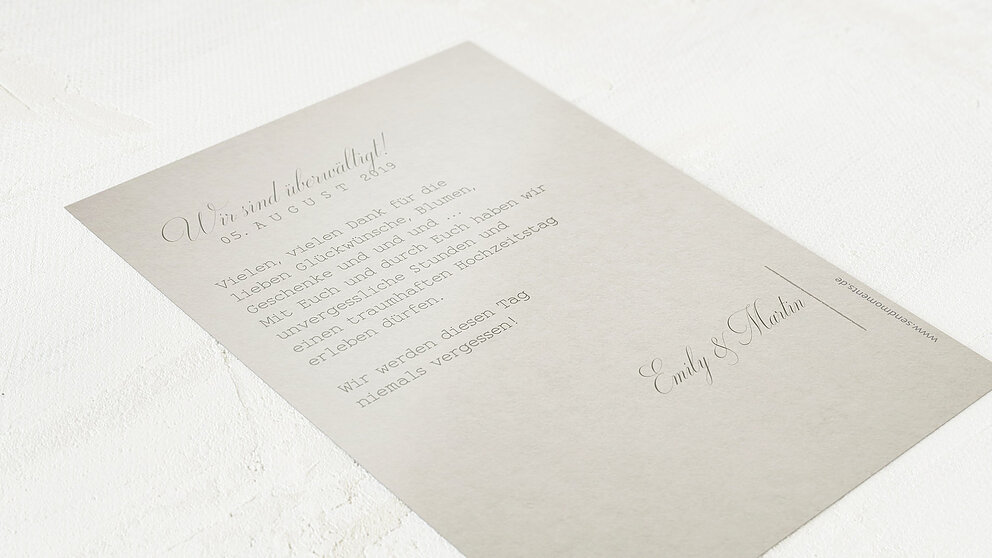 Wir sind überwältigt!
05. AUGUST 2019
Vielen, vielen Dank für die
lieben Glückwünsche, Blumen,
Geschenke und und und ...
Mit Euch und durch Euch haben wir
unvergessliche Stunden und
einen traumhaften Hochzeitstag
erleben dürfen.
Wir werden diesen Tag
niemals vergessen!
Emily & Martin
www.sendmoments.de